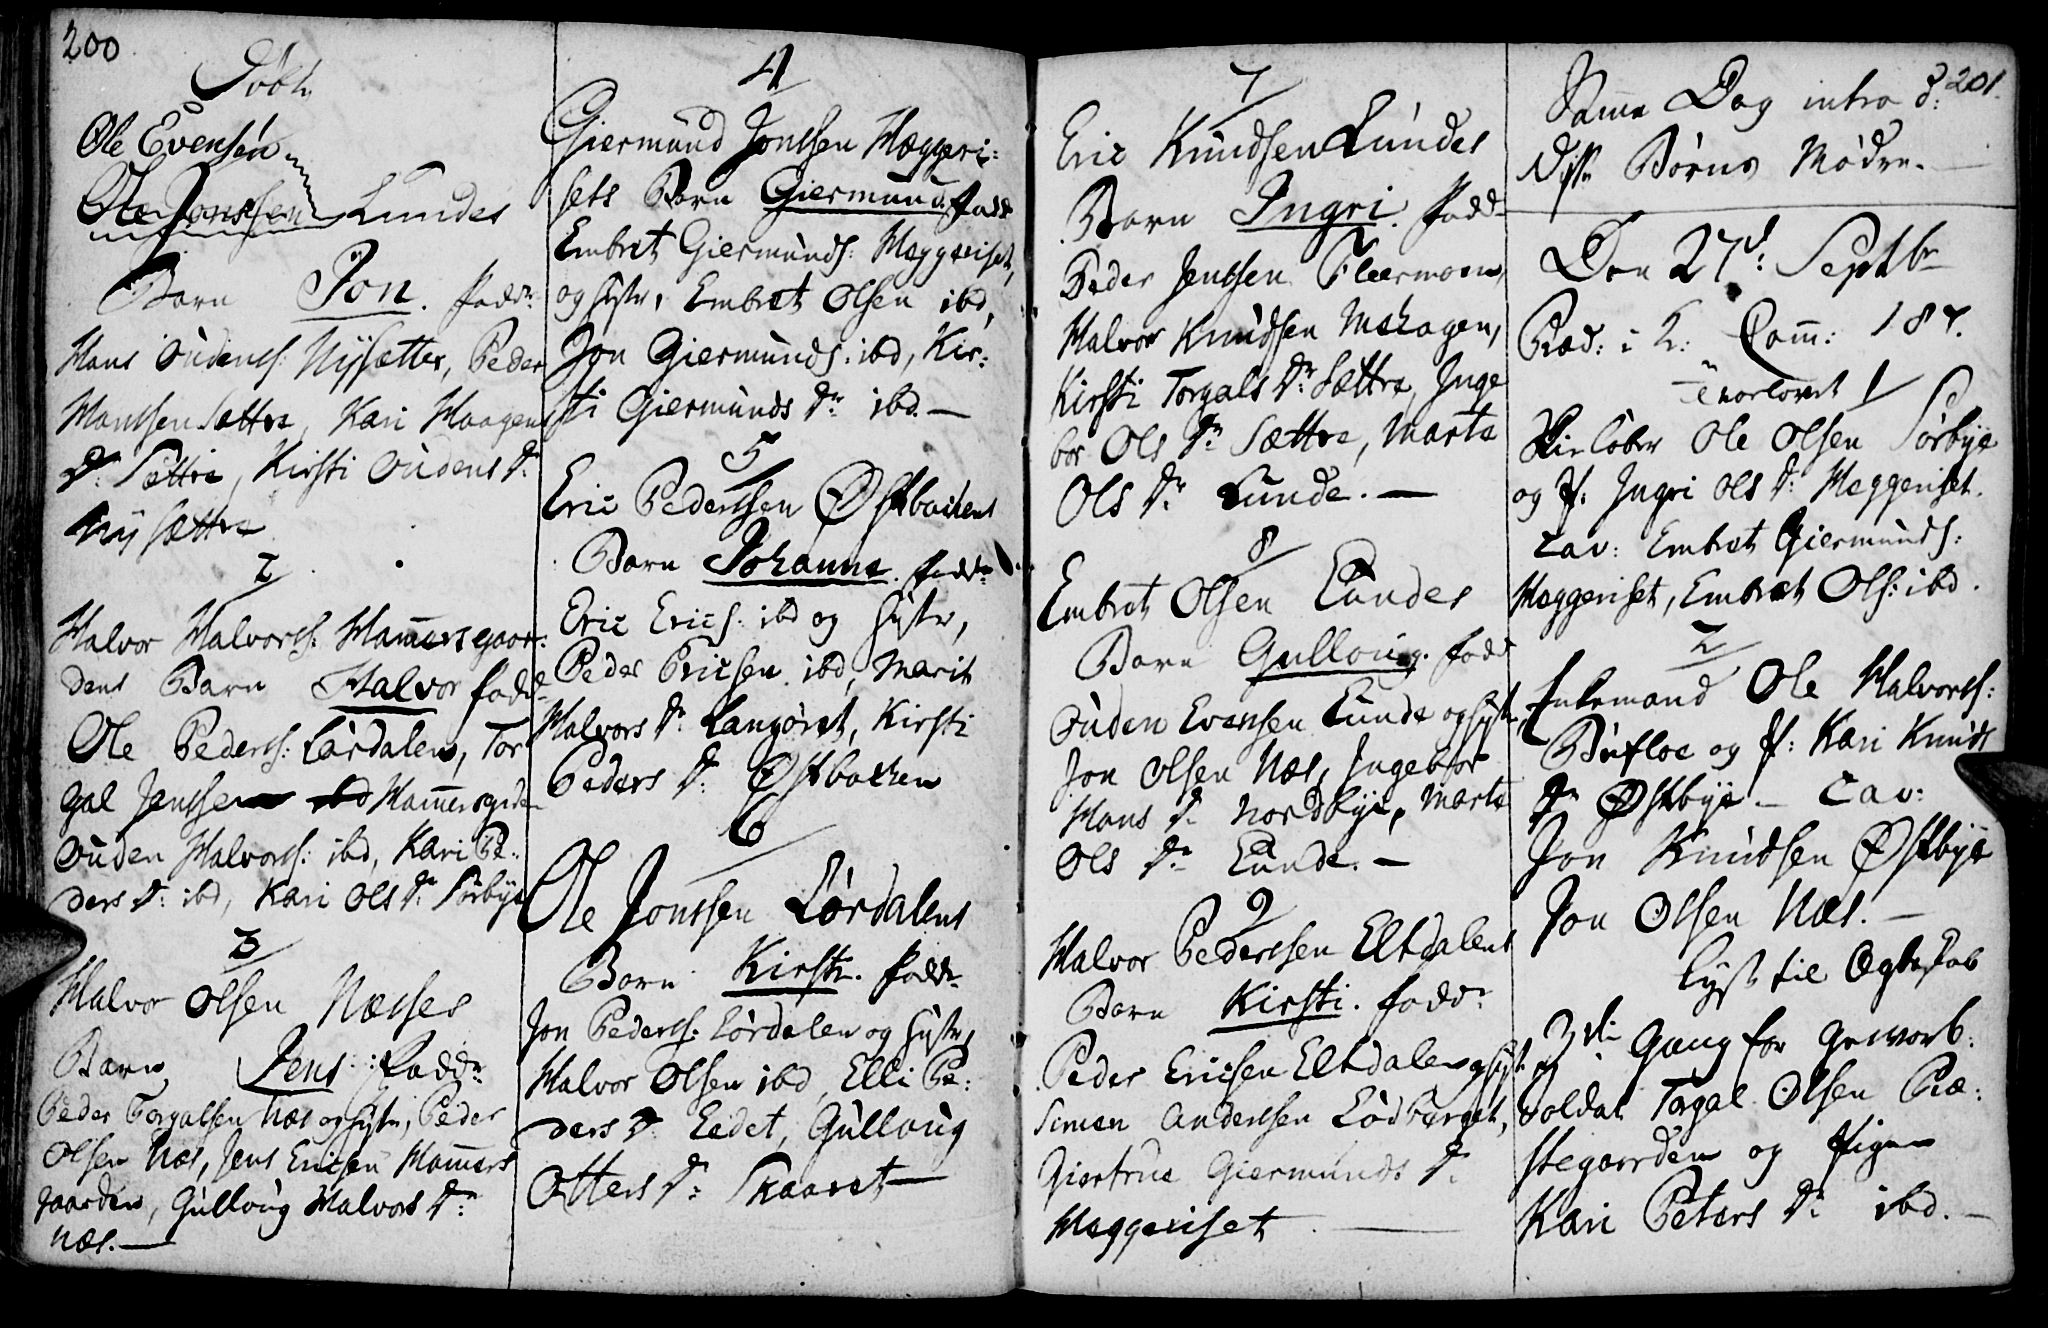 200
Döbt
Ole Evensön
Ole Jonssen Lundes
Barn Jon. fadd:
Hans Oudens: Nysætter, Peder
Hanssen Sættre, Kari Haagens
D: Sættre, Kirsti Oudens Dr
Nysættre
2
Halvor Halvors: Ham̄ersgaar:
dens Barn Halvor fadd
Ole Peders: Lördalen, Tor
gal Jenssen Ham̄ersgrden
Ouden Halvors: ibd, Kari Pe:
ders D: ibd, Kari Ols Dr Sörbye
3
Halvor Olsen Næsses
Barn Jens: fadd:
Peder Torgalsen Næs og Hustr, Peder
Olsen Næs, Jens Ericsen Ham̄ers
gaarden, Gulloug Halvors Dr
Næs. —
4
Giermund Jonssen Heggeri:
sets Barn Giermund. fadd
Embret Giermunds: Heggeriset,
og Hustr, Embret Olsen ibd,
Jon Giermunds: ibd, Kir:
sti Giermunds Dr ibd. —
5
Eric Pederssen Östbakens
Barn Johanne. fadd:
Eric Erics: ibd og Hustr,
Peder Ericsen ibd, Marit
Halvors Dr Langöret, Kirsti
Peders D: Östbakken
6
Ole Jonssen Lördalens
Barn Kirsti. fadd:
Jon Peders: Lördalen og Hustr,
Halvor Olsen ibd, Elli Pe:
ders D: Eedet, Gulloug
Otters D: Skaaret —
7
Eric Knudsen Lundes
Barn Ingri. fadd
Peder Jenssen Fleermoen,
Halvor Knudsen Mohagen,
Kirsti Torgals Dr Sættre, Inge
bor Ols Dr Sættre, Marte
Ols Dr Lunde. —
8
Embret Olsen Lundes
Barn Gulloug. fadd
Ouden Evensen Lunde og Hust
Jon Olsen Næs, Ingebor
Hans Dr Nordbye, Marte
Ols Dr Lunde. —
9
Halvor Pederssen Eltdalens
Barn Kirsti. fadd:
Peder Ericsen Eltdalen og Hust
Simen Anderssen Lödberget,
Giertrue Giermunds D:
Heggeriset. —
201.
Sam̄e Dag intro d:
disse Börns Mödre. —
Den 27d: Septbr
Præd: i T: Com̄: 187.
Trorlovet 1
Skielöber Ole Olsen Sörbye
og P: Ingri Ols D: Heggeriset.
Cav: Embret Giermunds:
Heggeriset, Embret Ols: ibd.
2
Enkemand Ole Halvors:
Bufloe og P: Kari Knuds
Dr Östbye — Cav:
Jon Knudsen Östbye
Jon Olsen Næs. —
Lyst til Ægteskab
3die Gang for Gevorb:
Soldat Torgal Olsen Præ:
stegaarden og Pigen
Kari Peters Dr ibd. —